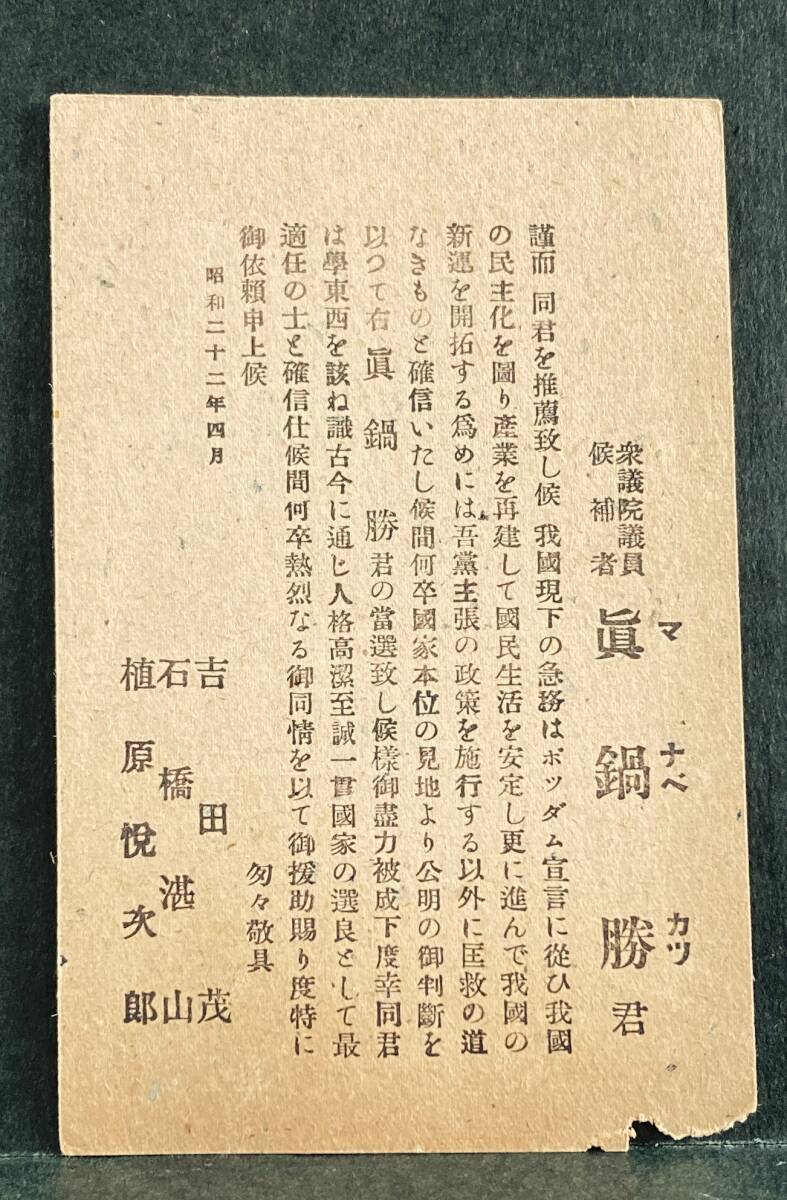 衆議院議員
候補者
眞鍋勝君
マナベカツ
謹而 同君を推薦致し候 我國現下の急務はポツダム宣言に從ひ我國
の民主化を圖り產業を再建して國民生活を安定し更に進んで我國の
新運を開拓する爲めには吾黨主張の政策を施行する以外に匡救の道
なきものと確信いたし候間何卒國家本位の見地より公明の御判斷を
以つて右眞鍋勝君の當選致し候樣御盡力被成下度幸同君
は學東西を該ね識古今に通じ人格高潔至誠一貫國家の選良として最
適任の士と確信仕候間何卒熱烈なる御同情を以て御援助賜り度特に
御依賴申上候
匆々敬具
昭和二十二年四月
吉田茂
石橋湛山
植原悅次郎